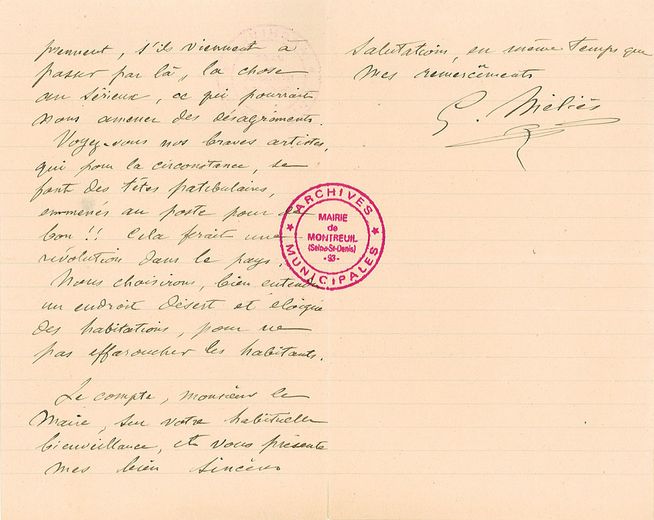 prennent, s'ils viennent à
passer par là, la chose
au sérieux, ce qui pourrait
nous amener des désagréments.
Voyez-vous nos braves artistes,
qui pour la circonstance, se
font des têtes patibulaires,
emmenés au poste pour de
bon !! Cela ferait une
révolution dans le pays.
Nous choisirons, bien entendu
un endroit désert et éloigné
des habitations, pour ne
pas effaroucher les habitants.
Je compte, monsieur le
Maire, sur votre habituelle
bienveillance, et vous présente
mes bien sincères
salutations, en même temps que
mes remerciments
G. Méliès
ARCHIVES
MAIRIE
de
MONTREUIL
(Seine-St-Denis)
-93-
MUNICIPALES